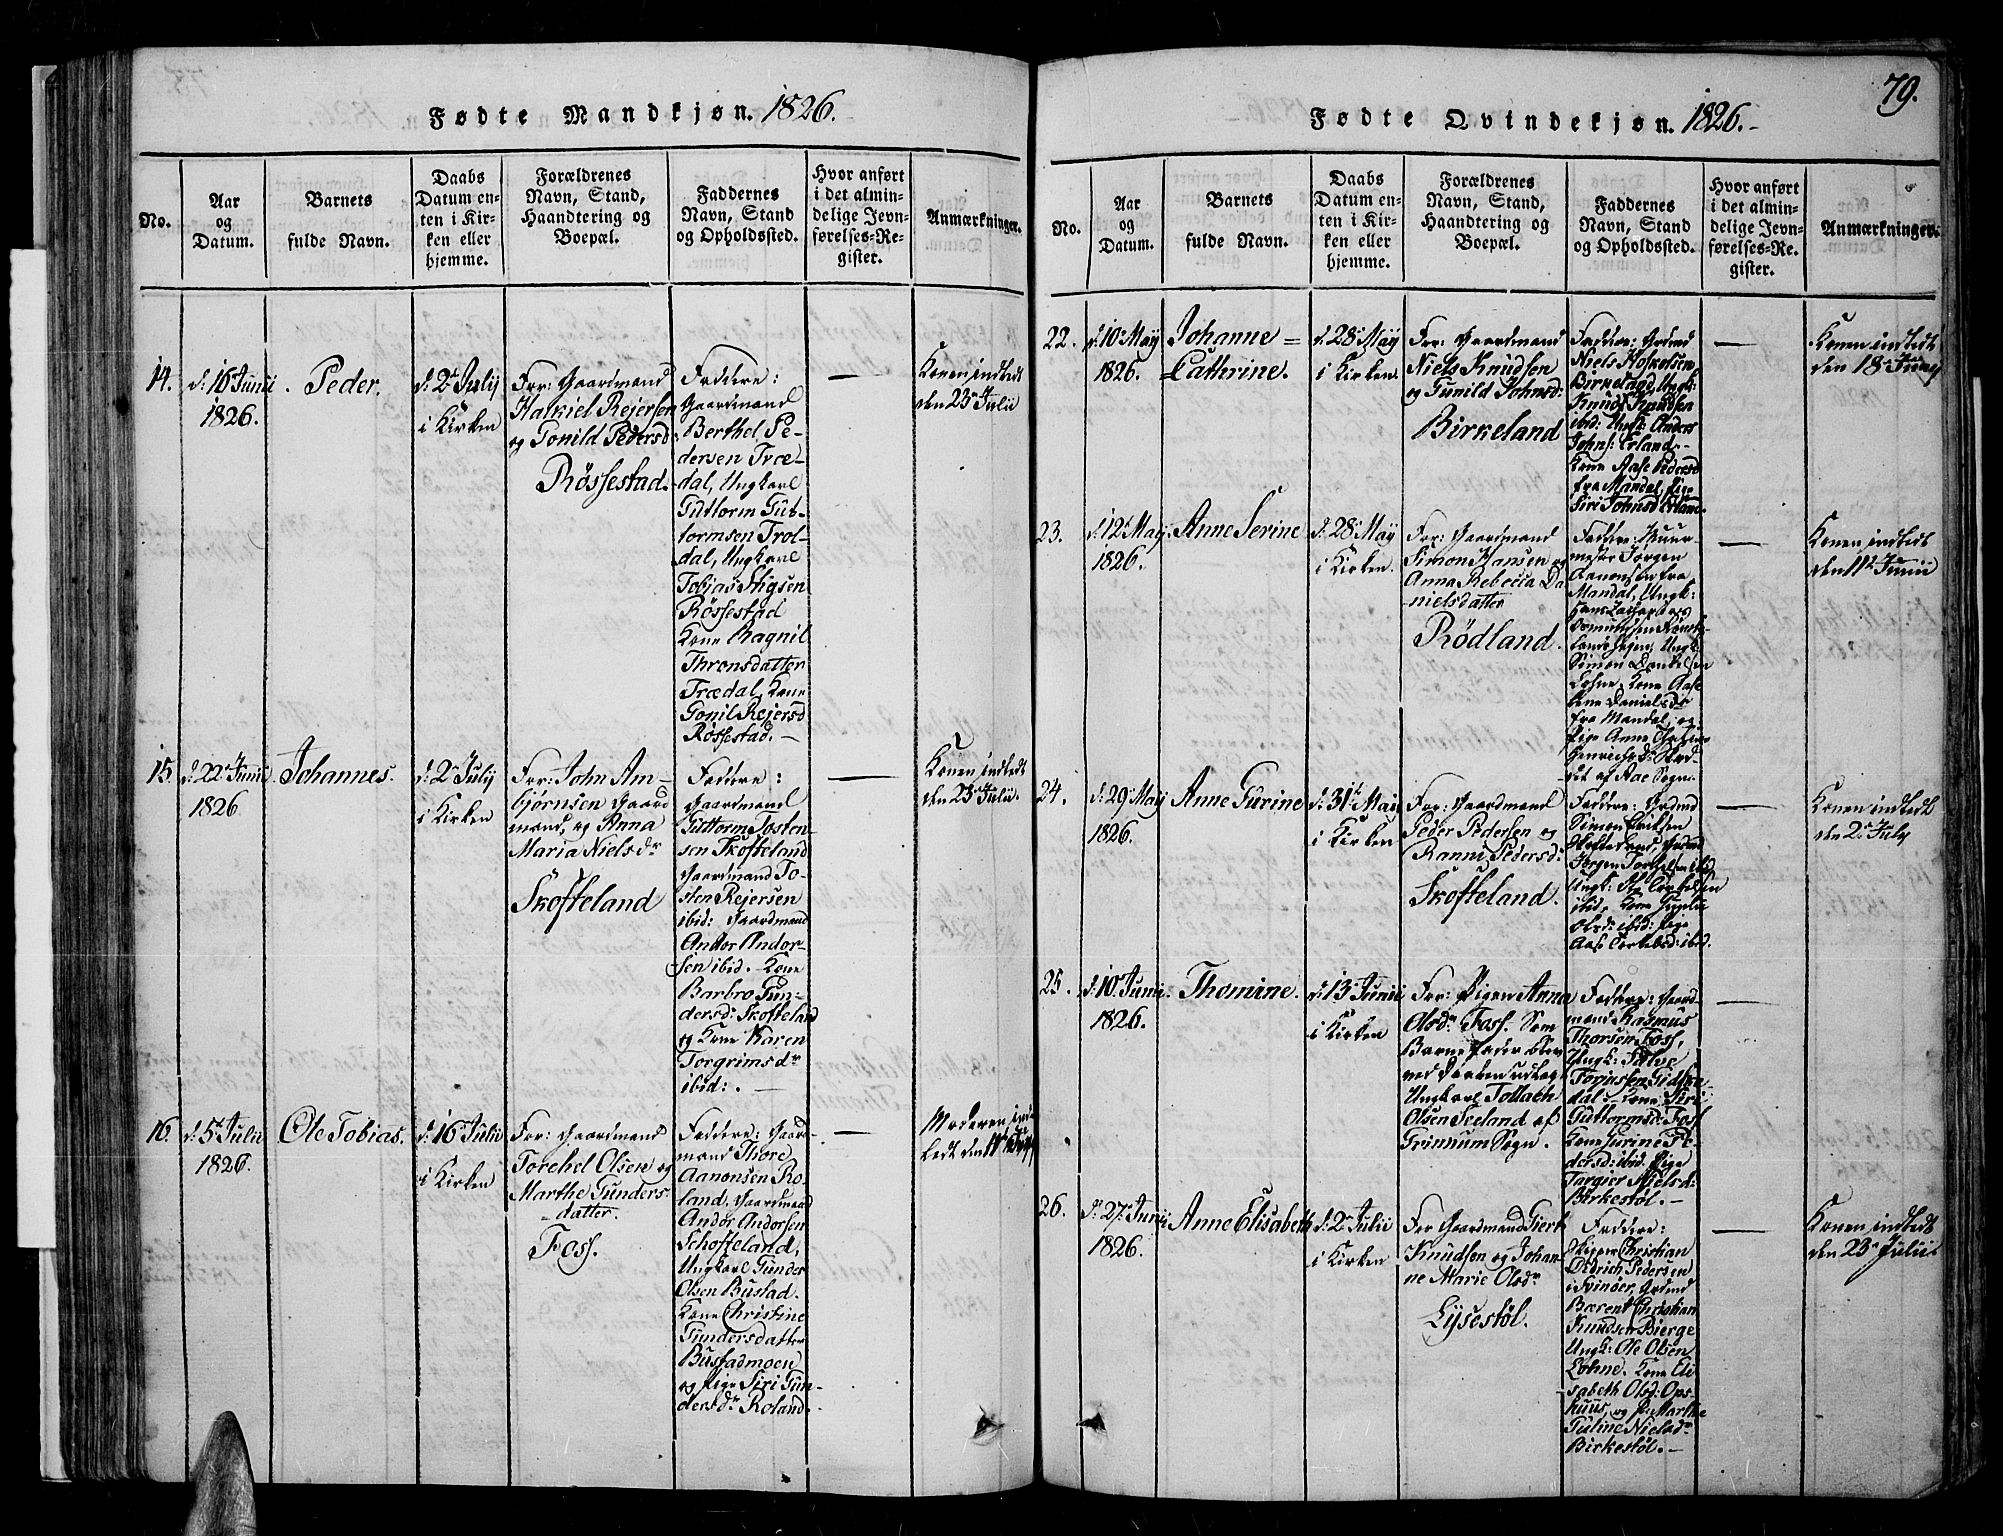 Fødte Mandkjøn. 1826.
No.
Aar
og
Datum.
Barnets
fulde Navn.
Daabs
Datum en-
ten i Kir-
ken eller
hjemme.
Forældrenes
Navn, Stand,
Haandtering og
Boepæl.
Faddernes
Navn, Stand
og Opholdssted.
Hvor anført
i det almin-
delige Jevn-
førelses-Re-
gister.
Anmærkninger.
14.
d: 16 Junii
1826.
Peder.
d: 2 July
i Kirken
For: Gaardmand
Halkiel Rejersen
og Tonild Pedersd:
Røssestad.
Faddere:
Gaardmand
Berthel Pe-
dersen Træ-
dal, Ungkarl
Guttorm Gut-
tormsen Trol-
dal, Ungkarl
Tobias Stigsen
Røssestad
Kone Ragnil
Thronsdatter
Trædal, Kone
Gonil Rejersd
Røssestad. —
—
Konen indledt
den 23 Julii
15
d: 22 Junii
1826
Johannes.
d: 2 July
i Kirken
For: John Am-
bjørnsen Gaard
mand, og Anna
Maria Nielsdr
Skofteland
Faddere:
Gaardmand
Guttorm Tosten-
sen Skofteland
Gaardmand To-
sten Rejersen
ibid: Gaardmand
Andor Andor-
sen ibid. Kone
Barbro Gun-
dersd: Skofteland
og Kone Karen
Torgrimsdr
ibid: . —
—
Konen indledt
den 23 Julii.
16.
d: 5 Julii
1826.
Ole Tobias.
d: 16 Julii
i Kirken
For: Gaardmand
Torchel Olsen og
Marthe Gunders-
datter.
Foss.
Faddere: Gaard-
mand Thore
Aanonsen Ro-
land, Gaardmand
Andor Andorsen
Schofteland,
Ungkarl Gunder
Olsen Bustad.
Kone Christine
Gundersdatter
Bustadmoen
og Pige Siri Gun-
dersdr Roland.
—
Moderen ind-
ledt den
79.
Fødte Qvindekjøn. 1826.
No.
Aar
og
Datum.
Barnets
fulde Navn.
Daabs
Datum en-
ten i Kir-
ken eller
hjemme.
Forældrenes
Navn, Stand,
Haandtering og
Boepæl.
Faddernes
Navn, Stand
og Opholdssted.
Hvor anført
i det almin-
delige Jevn-
førelses-Re-
gister.
Anmærkninger.
22.
d: 10 May
1826.
Johanne =
= Cathrine.
d: 28 May
i Kirken
For: Gaardmand
Niels Knudsen
og Gunild Johnsd:
Birkeland
Faddere: Grdmd
Niels
Birkeland, Ungk:
Knud Knudsen
ibid: Ungk: Anders
Johns: Erland.
Kone Aase Pedersd
fra Mandal, Pige
Siri Johnsd Erland.
—
Konen indledt
den 18 Juny
23.
d: 12 May
1826.
Anne Serine
d: 28 May
i Kirken.
For: Gaardmand
Simon Hansen og
Anna Rebecca Da
nielsdatter
Rødland.
Faddere: Muur-
mester Jørgen
Aanonsen fra
Mandal, Ungk:
Simon Danielsen
Lohne, Kone Aase
Danielsdr
fra Mandal, og
Pige Anne
af Aae Sogn.
—
Konen indledt
den 11 Junii
24.
d: 29 May
1826.
Anne Gurine
d: 31t Mai
i Kirken
For: Gaardmand
Peder Pedersen og
Ranni Pedersd:
Skofteland.
Faddere: Grdmd
Simon Eriksen
Skofteland, Grdmd
Jørgen Torkelsen ibid
Ungk:
ibid, Kone
Olsd: ibid: Pige
Aase ibid.
—
Konen indledt
den 2 July
25.
d: 10 Junii
1826.
Thomine.
d: 13 Junii
i Kirken
For: Pigen Anna
Olsdr Foss. Som
Barnefader blev
ved Daaben udlagt
Ungkarl Tollach
Olsen Seeland af
Grimum Sogn.
Faddere: Gaard-
mand Rasmus
Thorsen Foss,
Ungk: Salve
Torjussen
dal, Kone Siri
Guttormsd: Foss
Kone Gurine Pe-
dersd: ibid. Pige
Targier Nielsd:
Birkestøl. —
—
26.
d: 27 Junii
1826.
Anne Elisabeth
d: 2 Julii
i Kirken
For Gaardmand Giert
Knudsen og Johan-
ne Marie Olsdr
Lysestøl.
Faddere:
Skipper Christian
Didrich Pedersen
i Svinøer, Grdmd
Bærent Christian
Knudsen Bierge
Ungk: Ole Olsen
Lohne. Kone Eli
sabeth Olsd: Ops-
huus, og P: Marthe
Guline Nielsdr
Birkestøl. —
—
Konen indledt
den 23 Julii